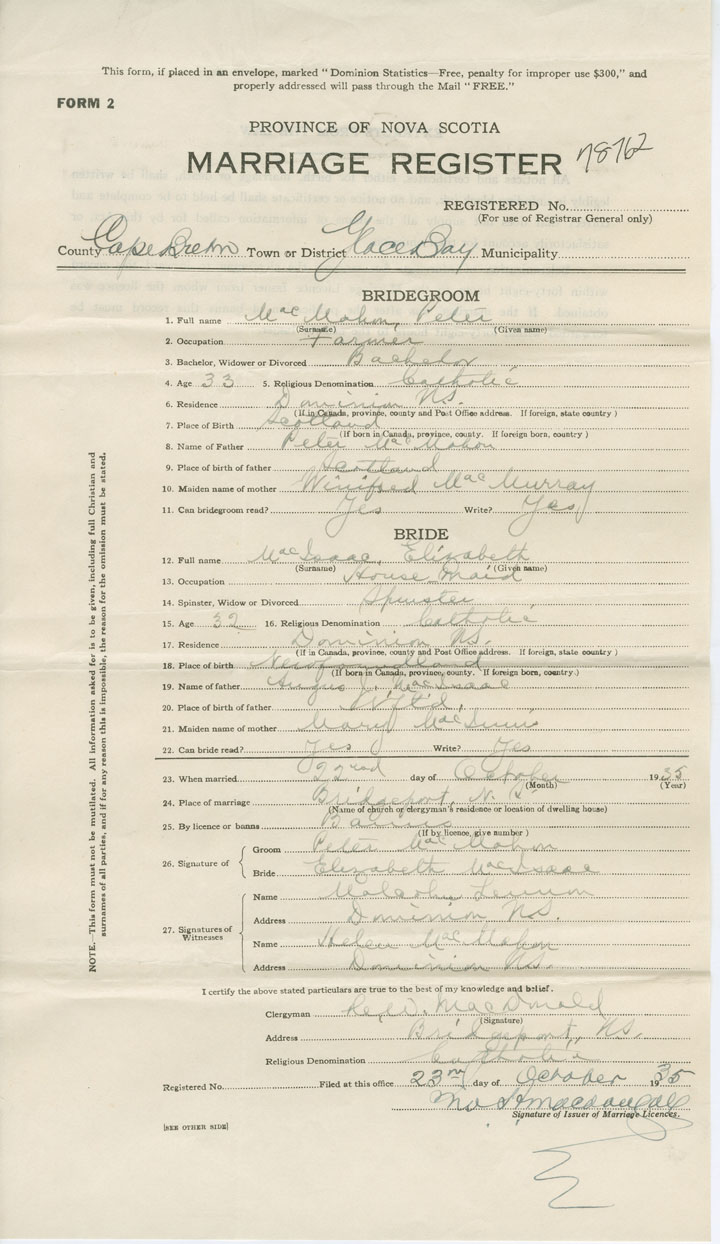 This form, if placed in an envelope, marked "Dominion Statistics—Free, penalty for improper use $300," and
properly addressed will pass through the Mail "FREE."
FORM 2
PROVINCE OF NOVA SCOTIA
MARRIAGE REGISTER 78762
REGISTERED No.
(For use of Registrar General only)
County Cape Breton Town or District Glace Bay Municipality
BRIDEGROOM
1. Full name MacMahon, Peter
(Surname) (Given name)
2. Occupation Farmer
3. Bachelor, Widower or Divorced Bachelor
4. Age 33 5. Religious Denomination Catholic
6. Residence Dominion N.S.
(If in Canada, province, county and Post Office address. If foreign, state country)
7. Place of Birth Scotland
(If born in Canada, province, county. If foreign born, country)
8. Name of Father Peter MacMahon
9. Place of birth of father Scotland
10. Maiden name of mother Winifred MacMurray
11. Can bridegroom read? Yes Write? Yes
BRIDE
12. Full name MacIsaac, Elizabeth
(Surname) (Given name)
13. Occupation House Maid
14. Spinster, Widow or Divorced Spinster
15. Age 32 16. Religious Denomination Catholic
17. Residence Dominion N.S.
(If in Canada, province, county and Post Office address. If foreign, state country)
18. Place of birth Newfoundland
(If born in Canada, province, county. If foreign born, country.)
19. Name of father Angus J. MacIsaac
20. Place of birth of father Nfld,
21. Maiden name of mother Mary MacInnis
22. Can bride read? Yes Write? Yes
23. When married 22nd day of October 1935
(Month) (Year)
24. Place of marriage Bridgeport, N.S.
(Name of church or clergyman's residence or location of dwelling house)
25. By licence or banns Banns
(If by licence, give number)
26. Signature of Groom Peter MacMahon
Bride Elizabeth MacIsaac
27. Signatures of Witnesses Name Malcolm
Address Dominion N.S.
Name Helen MacMahon
Address Dominion N.S.
I certify the above stated particulars are true to the best of my knowledge and belief.
Clergyman MacDonald
(Signature)
Address Bridgeport, N.S.
Religious Denomination Catholic
Registered No. Filed at this office 23rd day of October 1935
Macdougall
Signature of Issuer of Marriage Licences.
[SEE OTHER SIDE]
NOTE.—This form must not be mutilated. All information asked for is to be given, including full Christian and
surnames of all parties, and if for any reason this is impossible, the reason for the omission must be stated.